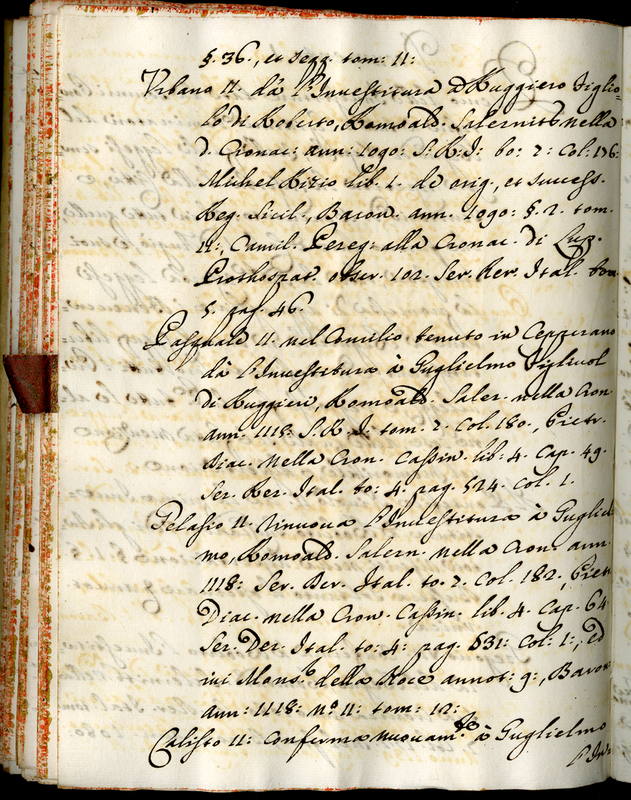 §. 36., et segg. tom: 11:
Urbano II. dà l'Investitura à Ruggiero figlio-
lo di Roberto, Romoald. Salernit. nella
d. Cronac: ann: 1090: S. R. I: to: 7: Col: 176:
Michel Rizio lib. 1. de orig., et success.
Reg. Sicil., Baron. ann. 1090: §. 2. tom.
11:, Camil. Pereg: alla Cronac. di Lup.
Prothospat. obser. 102. Ser. Rer. Ital. tom.
5. pag. 46.
Pasquale II. nel Concilio tenuto in Cepperano
dà l'Investitura à Guglielmo figliuol
di Ruggieri, Romoald. Saler. nella Cron
ann. 1118: S. R. I. tom. 7. Col. 180., Pietr.
Diac. nella Cron. Cassin. lib: 4. Cap. 49.
Ser. Rer. Ital. to: 4. pag. 524. Col. 1.
Gelasio II. rinuova l'Investitura à Gugliel
mo, Romoald. Salern. nella Cron. ann.
1118: Ser. Rer. Ital. to. 7. Col. 182., Pietr
Diac. nella Cron. Cassin. lib. 4. Cap. 64
Ser. Rer. Ital. to: 4: pag. 531: Col: 1:, ed
ivi Mons.r della Noce annot: 9:, Baron
ann: 1118: n.o 11: tom: 12:
Calisto II: conferma nuovam.te à Guglielmo
l'In